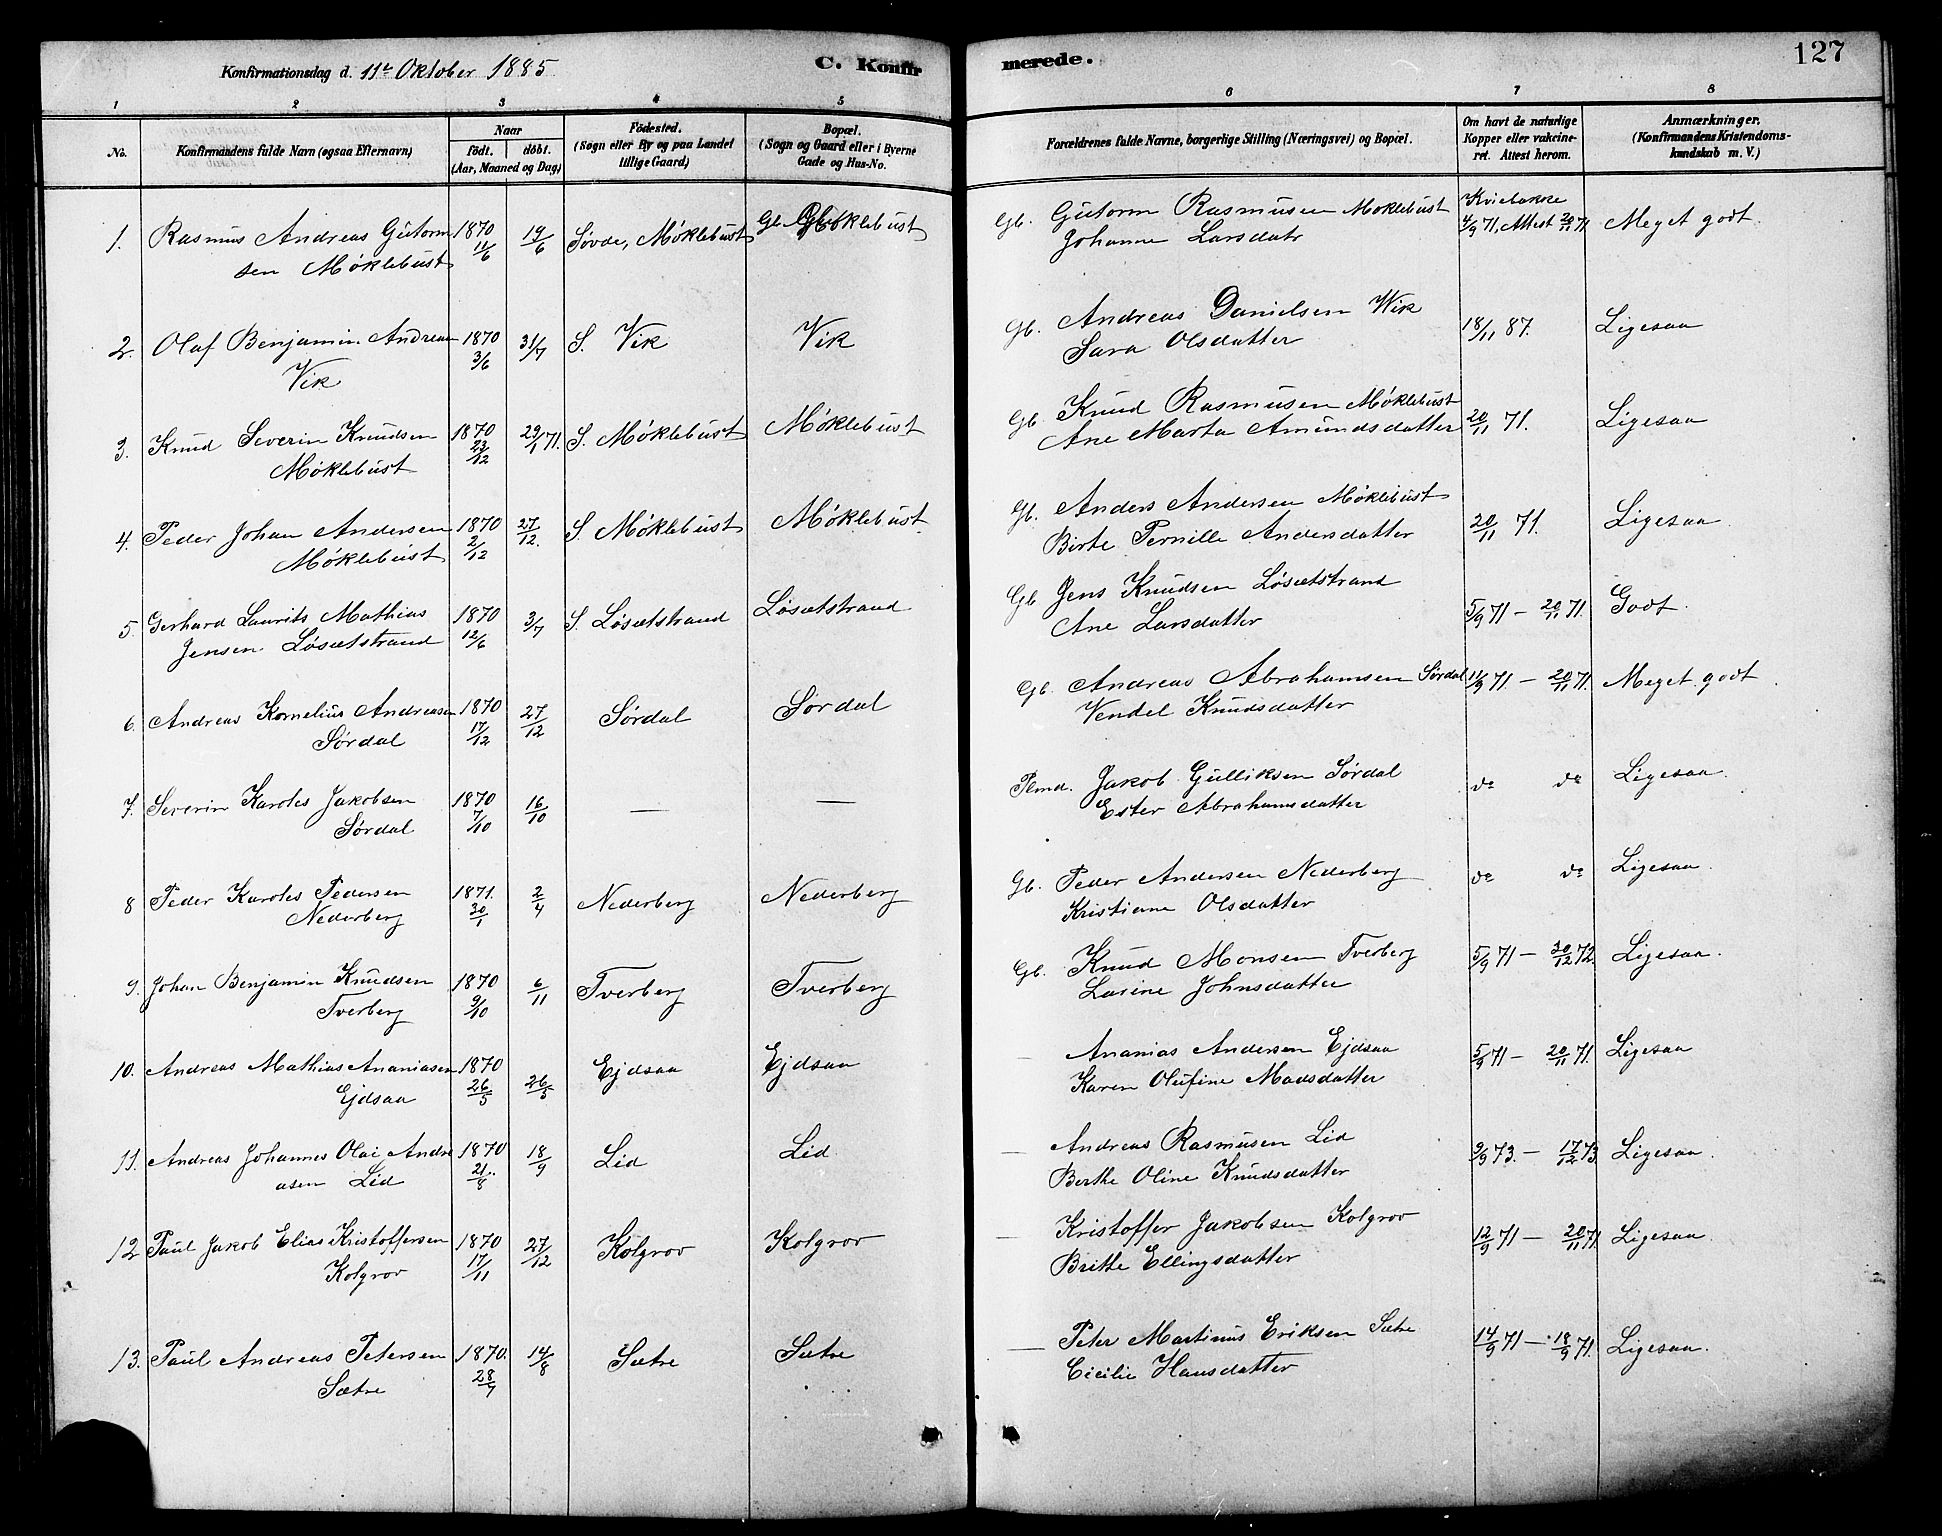 Konfirmationsdag d. 11te Oktober 1885
C. Konfir
merede.
127
1 2 3 4 5 6 7 8
No.
Konfirmandens fulde Navn (ogsaa Efternavn)
Naar
födt. döbt.
(Aar, Maaned og Dag)
Födested.
(Sogn eller By og paa Landet
tillige Gaard)
Bopæl.
(Sogn og Gaard eller i Byerne
Gade og Hus-No.
Forældrenes fulde Navne, borgerlige Stilling (Næringsvei) og Bopæl.
Om havt de naturlige
Kopper eller vakcine-
ret. Attest herom.
Anmærkninger.
(Konfirmandens Kristendoms-
kundskab m. V.)
1. Rasmus Andreas Gutorm 1870 19/6 Søvde, Møklebust Gb. Møklebust Gb. Gutorm Rasmusen Moklebust
sen Møklebust 11/6 Johanne Larsdatr 4/9 71, Attest 20/11 71 Meget godt.
2. Olaf Benjamin Andreas 1870 31/7 S. Vik Vik Gb. Andreas Danielsen Wik 18/11 87. Ligesaa
Vik 3/6 Sara Olsdatter
3. Knud Severin Knudsen 1870 29/1 71. S. Møklebust Møklebust Gb. Knud Rasmusen Møklebust 20/11 71. Ligesaa
Møklebust 23/12 Ane Marta Amundsdatter
4. Peder Johan Andersen 1870 27/12. S Møklebust Møklebust Gb. Anders Andersen Møklebust 20/11 71. Ligesaa.
Møklebust 2/12 Birte Pernille Andersdatter
5. Gerhard Laurits Mathias 1870 3/7 S. Løsætstrand Løsætstrand Gb Jens Knudsen Løsætstrand 5/9 71 – 20/11 71. Godt.
Jensen Løsætstrand 12/6 Ane Larsdatter
6. Andreas Kornelius Andreasen 1870 27/12 Sørdal Sørdal Gb. Andreas Abrahamsen Sørdal 11/9 71. – 20/11 71. Meget godt.
Sørdal 17/12 Vendel Knudsdatter
7. Severin Karoles Jakobsen 1870 16/10 — — Plmd. Jakob Gulliksen Sørdal do do Ligesaa.
Sørdal 7/10 Ester Abrahamsdatter
8 Peder Karoles Pedersen 1871. 2/4 Nederberg Nederberg Gb. Peder Andersen Nederberg do do Ligesaa.
Nederberg 30/1 Kristiane Olsdatter
9. Johan Benjamin Knudsen 1870 6/11 Tverberg Tverberg Gb. Knud Monsen Tverberg 5/9 71 – 30/12 72. Ligesaa.
Tverberg 9/10 Larine Johnsdatter
10. Andreas Mathias Ananiasen 1870 26/5 Ejdsaa Ejdsaa — Ananias Andersen Ejdsaa 5/9 71 – 20/11 71. Ligesaa
Ejdsaa 26/5 Karen Olufine Madsdatter
11. Andreas Johannes Olai Andre 1870 18/9 Lid Lid — Andreas Rasmusen Lid 9/9 73. – 17/12 73. Ligesaa.
asen Lid 21/8 Berthe Oline Knudsdatter
12 Paul Jakob Elias Kristoffersen 1870 27/12 Kolgrov Kolgrov — Kristoffer Jakobsen Kolgrov 12/9 71 – 20/11 71. Ligesaa.
Kolgrov 17/11 Brithe Ellingsdatter
13. Paul Andreas Petersen 1870. 14/8 Sætre Sætre — Peter Martinus Eriksen Sætre 14/9 71 – 18/9 71. Ligesaa.
Sætre 28/7 Cicilie Hansdatter